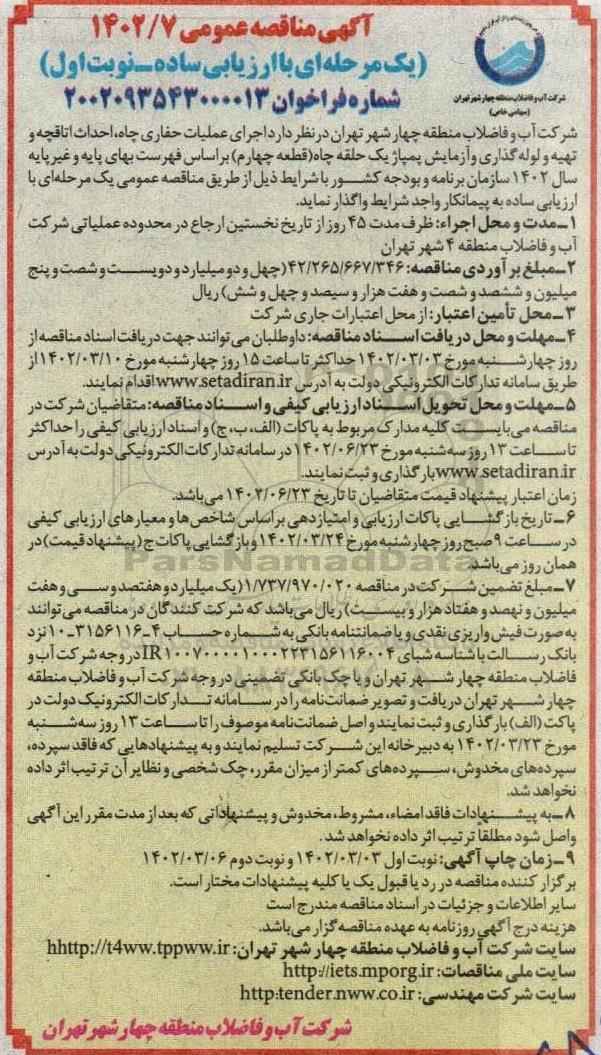 آگهی مناقصه عمومی ۱۴۰۲/۷
(یک مرحله‌ای با ارزیابی ساده_نوبت اول)
شماره فراخوان ۲۰۰۲۰۹۳۵۴۳۰۰۰۰۱۳
شرکت آب و فاضلاب منطقه چهار شهر تهران
(سهامی خاص)
شرکت آب و فاضلاب منطقه چهار شهر تهران در نظر دارد اجرای عملیات حفاری چاه، احداث اتاقچه و
تهیه و لوله گذاری و آزمایش پمپاژ یک حلقه چاه (قطعه چهارم) بر اساس فهرست بهای پایه و غیر پایه
سال ۱۴۰۲ سازمان برنامه و بودجه کشور با شرایط ذیل از طریق مناقصه عمومی یک مرحله‌ای با
ارزیابی ساده به پیمانکار واجد شرایط واگذار نماید.
۱_مدت و محل اجراء: ظرف مدت ۴۵ روز از تاریخ نخستین ارجاع در محدوده عملیاتی شرکت
آب و فاضلاب منطقه ۴ شهر تهران
۲_مبلغ برآوردی مناقصه: ۴۲/۲۶۵/۶۶۷/۳۴۶ (چهل و دو میلیارد و دویست و شصت و پنج
میلیون و ششصد و شصت و هفت هزار و سیصد و چهل و شش) ریال
۳_محل تأمین اعتبار: از محل اعتبارات جاری شرکت
۴_مهلت و محل دریافت اسناد مناقصه: داوطلبان می‌توانند جهت دریافت اسناد مناقصه از
روز چهارشنبه مورخ ۱۴۰۲/۰۳/۰۳ حداکثر تا ساعت ۱۵ روز چهارشنبه مورخ ۱۴۰۲/۰۳/۱۰ از
طریق سامانه تدارکات الکترونیکی دولت به آدرس www.setadiran.ir اقدام نمایند.
۵_مهلت و محل تحویل اسناد ارزیابی کیفی و اسناد مناقصه: متقاضیان شرکت در
مناقصه می‌بایست کلیه مدارک مربوط به پاکات (الف، ب، ج) و اسناد ارزیابی کیفی را حداکثر
تا ساعت ۱۳ روز سه‌شنبه مورخ ۱۴۰۲/۰۶/۲۳ در سامانه تدارکات الکترونیکی دولت به آدرس
www.setadiran.ir بارگذاری و ثبت نمایند.
زمان اعتبار پیشنهاد قیمت متقاضیان تا تاریخ ۱۴۰۲/۰۶/۲۳ می‌باشد.
۶_تاریخ بازگشایی پاکات ارزیابی و امتیازدهی بر اساس شاخص‌ها و معیارهای ارزیابی کیفی
در ساعت ۹ صبح روز چهارشنبه مورخ ۱۴۰۲/۰۳/۲۴ و بازگشایی پاکات ج (پیشنهاد قیمت) در
همان روز می‌باشد
۷_مبلغ تضمین شرکت در مناقصه ۱/۷۳۷/۹۷۰/۰۲۰ (یک میلیارد و هفتصد و سی و هفت
میلیون و نهصد و هفتاد هزار و بیست) ریال می‌باشد که شرکت کنندگان در مناقصه می‌توانند
به صورت فیش واریزی نقدی و یا ضمانتنامه بانکی به شماره حساب ۴_۳۱۵۶۱۱۶_۱۰ نزد
بانک رسالت با شناسه شبای IR۱۰۰۷۰۰۰۰۱۰۰۰۲۲۳۱۵۶۱۱۶۰۰۴ در وجه شرکت آب و
فاضلاب منطقه چهار شهر تهران و یا چک بانکی تضمینی در وجه شرکت آب و فاضلاب منطقه
چهار شهر تهران دریافت و تصویر ضمانت‌نامه را در سامانه تدارکات الکترونیک دولت در
پاکت (الف) بارگذاری و ثبت نمایند و اصل ضمانت‌نامه موصوف را تا ساعت ۱۳ روز سه‌شنبه
مورخ ۱۴۰۲/۰۳/۲۳ به دبیرخانه این شرکت تسلیم نمایند و به پیشنهادهایی که فاقد سپرده،
سپرده‌های مخدوش، سپرده‌های کمتر از میزان مقرر، چک شخصی و نظایر آن ترتیب اثر داده
نخواهد شد.
۸_به پیشنهادات فاقد امضاء، مشروط، مخدوش و پیشنهاداتی که بعد از مدت مقرر این آگهی
واصل شود مطلقا ترتیب اثر داده نخواهد شد.
۹_زمان چاپ آگهی: نوبت اول ۱۴۰۲/۰۳/۰۳ و نوبت دوم ۱۴۰۲/۰۳/۰۶
برگزار کننده مناقصه در رد یا قبول یک یا کلیه پیشنهادات مختار است.
سایر اطلاعات و جزئیات در اسناد مناقصه مندرج است
هزینه درج آگهی روزنامه به عهده مناقصه‌گزار می‌باشد.
سایت شرکت آب و فاضلاب منطقه چهار شهر تهران: hhttp://t4ww.tppww.ir
سایت ملی مناقصات: http://iets.mporg.ir
سایت شرکت مهندسی: http:tender.nww.co.ir
شرکت آب و فاضلاب منطقه چهار شهر تهران
ParsNamadData